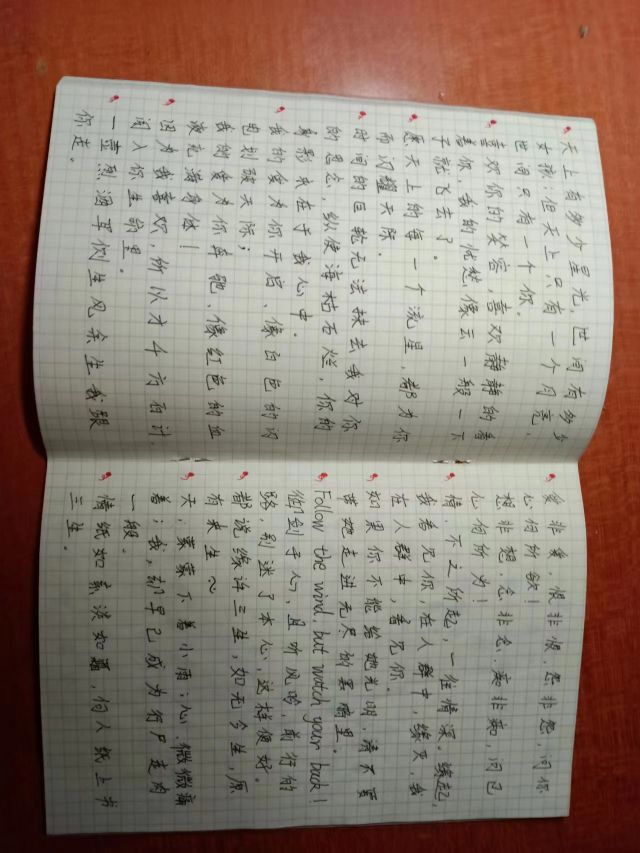 天上有多少星光,世间有多少
女孩,但天上只有一个月亮,
世间只有一个你。
喜欢你的笑容,喜欢静静的看
着你,我的忧愁像云一般一下
子就飞去了。
愿天上的每一个流星,都为你
而闪耀天际.
时间的回乾无法抹去我对你
的思念,纵使海枯石烂,你的
身影永在于我心中.
我的爱为你开启、像白色的闪
电划破天际;
我的爱为你奔驰、像红色的血
液充满身体!
因为我喜欢,所以才千方百计
闯入你生命里。
一壶烈酒耳侧生风余生我跟
你走。
爱非爱,恨非恨,怨非怨,问你
心何所欲!
想非想,念非念,痴非痴,问己
心何所为!
情.不之所起,一往情深。缘起,
我看见你,在人群中,缘灭,我
在人群中,看见你。
如果你不能给她光明,请不要
带她走进无尽的黑暗里。
Follow the wind,but watch your back!
御剑于心,且听风吟,前行的
路,别迷了本心,这样便好。
都说缘许三生,如无今生,原
有来生～
天;蒙蒙下着小雨;心.微微痛
着;我,却早已成为行尸走肉
一般。
情纸如素淡如疆,何人纸上书
三生.